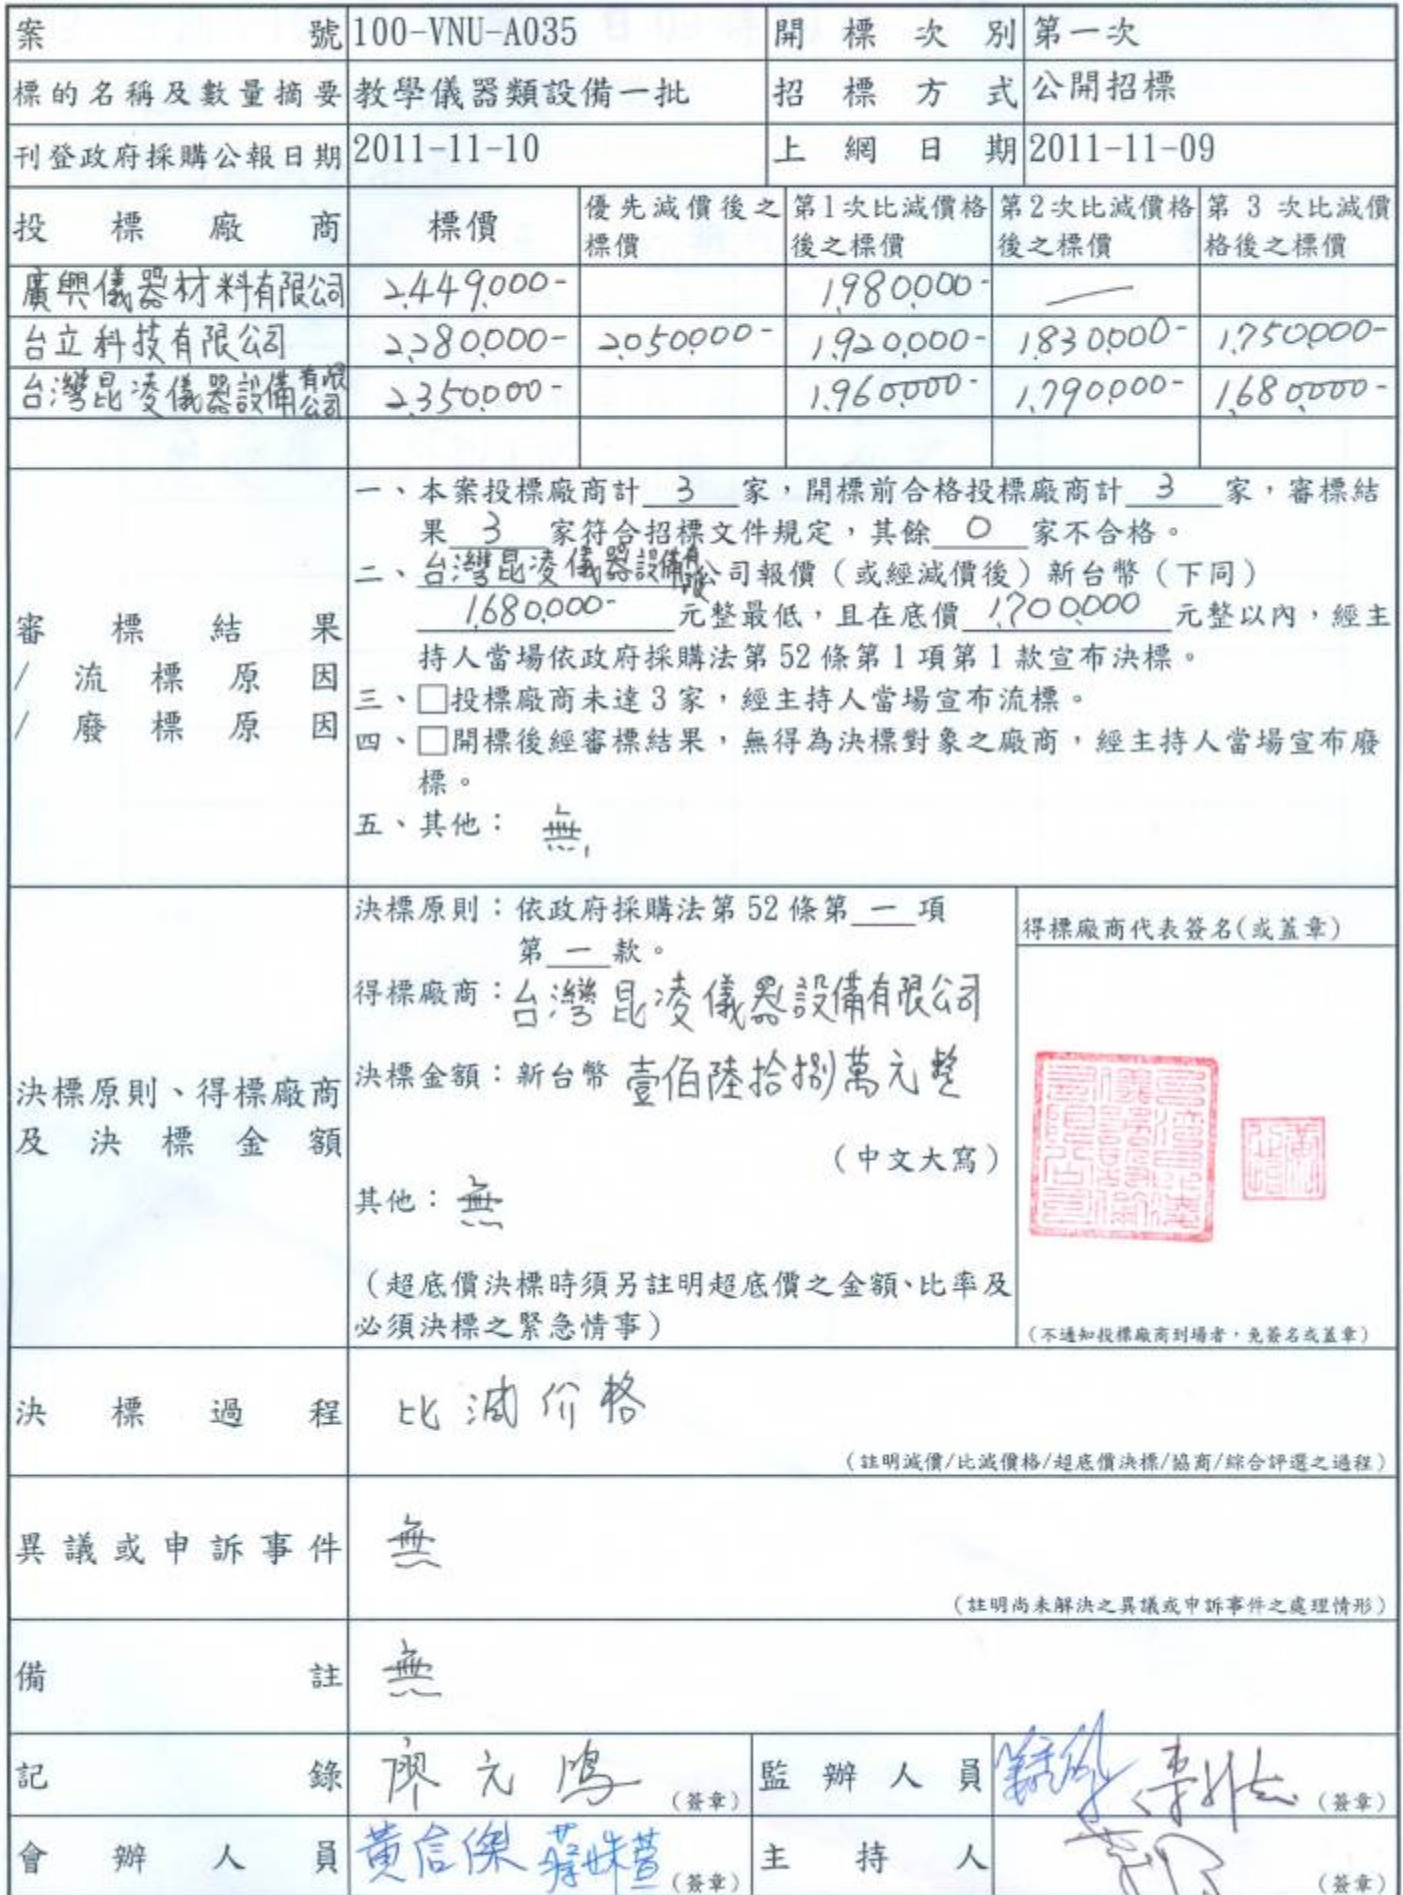 案號 100-VNU-A035 開標次別 第一次
標的名稱及數量摘要 教學儀器類設備一批 招標方式 公開招標
刊登政府採購公報日期 2011-11-10 上網日期 2011-11-09
投標廠商 標價 優先減價後之標價 第1次比減價格後之標價 第2次比減價格後之標價 第3次比減價格後之標價
廣興儀器材料有限公司 2,449,000- 1,980,000- —
台立科技有限公司 2,280,000- 2,050,000- 1,920,000- 1,830,000- 1,750,000-
台灣昆凌儀器設備有限公司 2,350,000- 1,960,000- 1,790,000- 1,680,000-
審標結果
/流標原因
/廢標原因
一、本案投標廠商計 3 家，開標前合格投標廠商計 3 家，審標結
果 3 家符合招標文件規定，其餘 0 家不合格。
二、台灣昆凌儀器設備有限公司報價（或經減價後）新台幣（下同）
1,680,000- 元整最低，且在底價 1,700,000 元整以內，經主
持人當場依政府採購法第 52 條第 1 項第 1 款宣布決標。
三、□投標廠商未達 3 家，經主持人當場宣布流標。
四、□開標後經審標結果，無得為決標對象之廠商，經主持人當場宣布廢
標。
五、其他： 無
決標原則、得標廠商
及決標金額
決標原則：依政府採購法第 52 條第 一 項
第 一 款。
得標廠商：台灣昆凌儀器設備有限公司
決標金額：新台幣 壹佰陸拾捌萬元整
（中文大寫）
其他：無
（超底價決標時須另註明超底價之金額、比率及
必須決標之緊急情事）
得標廠商代表簽名(或蓋章)
（不通知投標廠商到場者，免簽名或蓋章）
決標過程 比減价格
（註明減價/比減價格/超底價決標/協商/綜合評選之過程）
異議或申訴事件 無
（註明尚未解決之異議或申訴事件之處理情形）
備註 無
記錄 廖元鴻 （簽章） 監辦人員 （簽章）
會辦人員 黃信傑 （簽章） 主持人 （簽章）